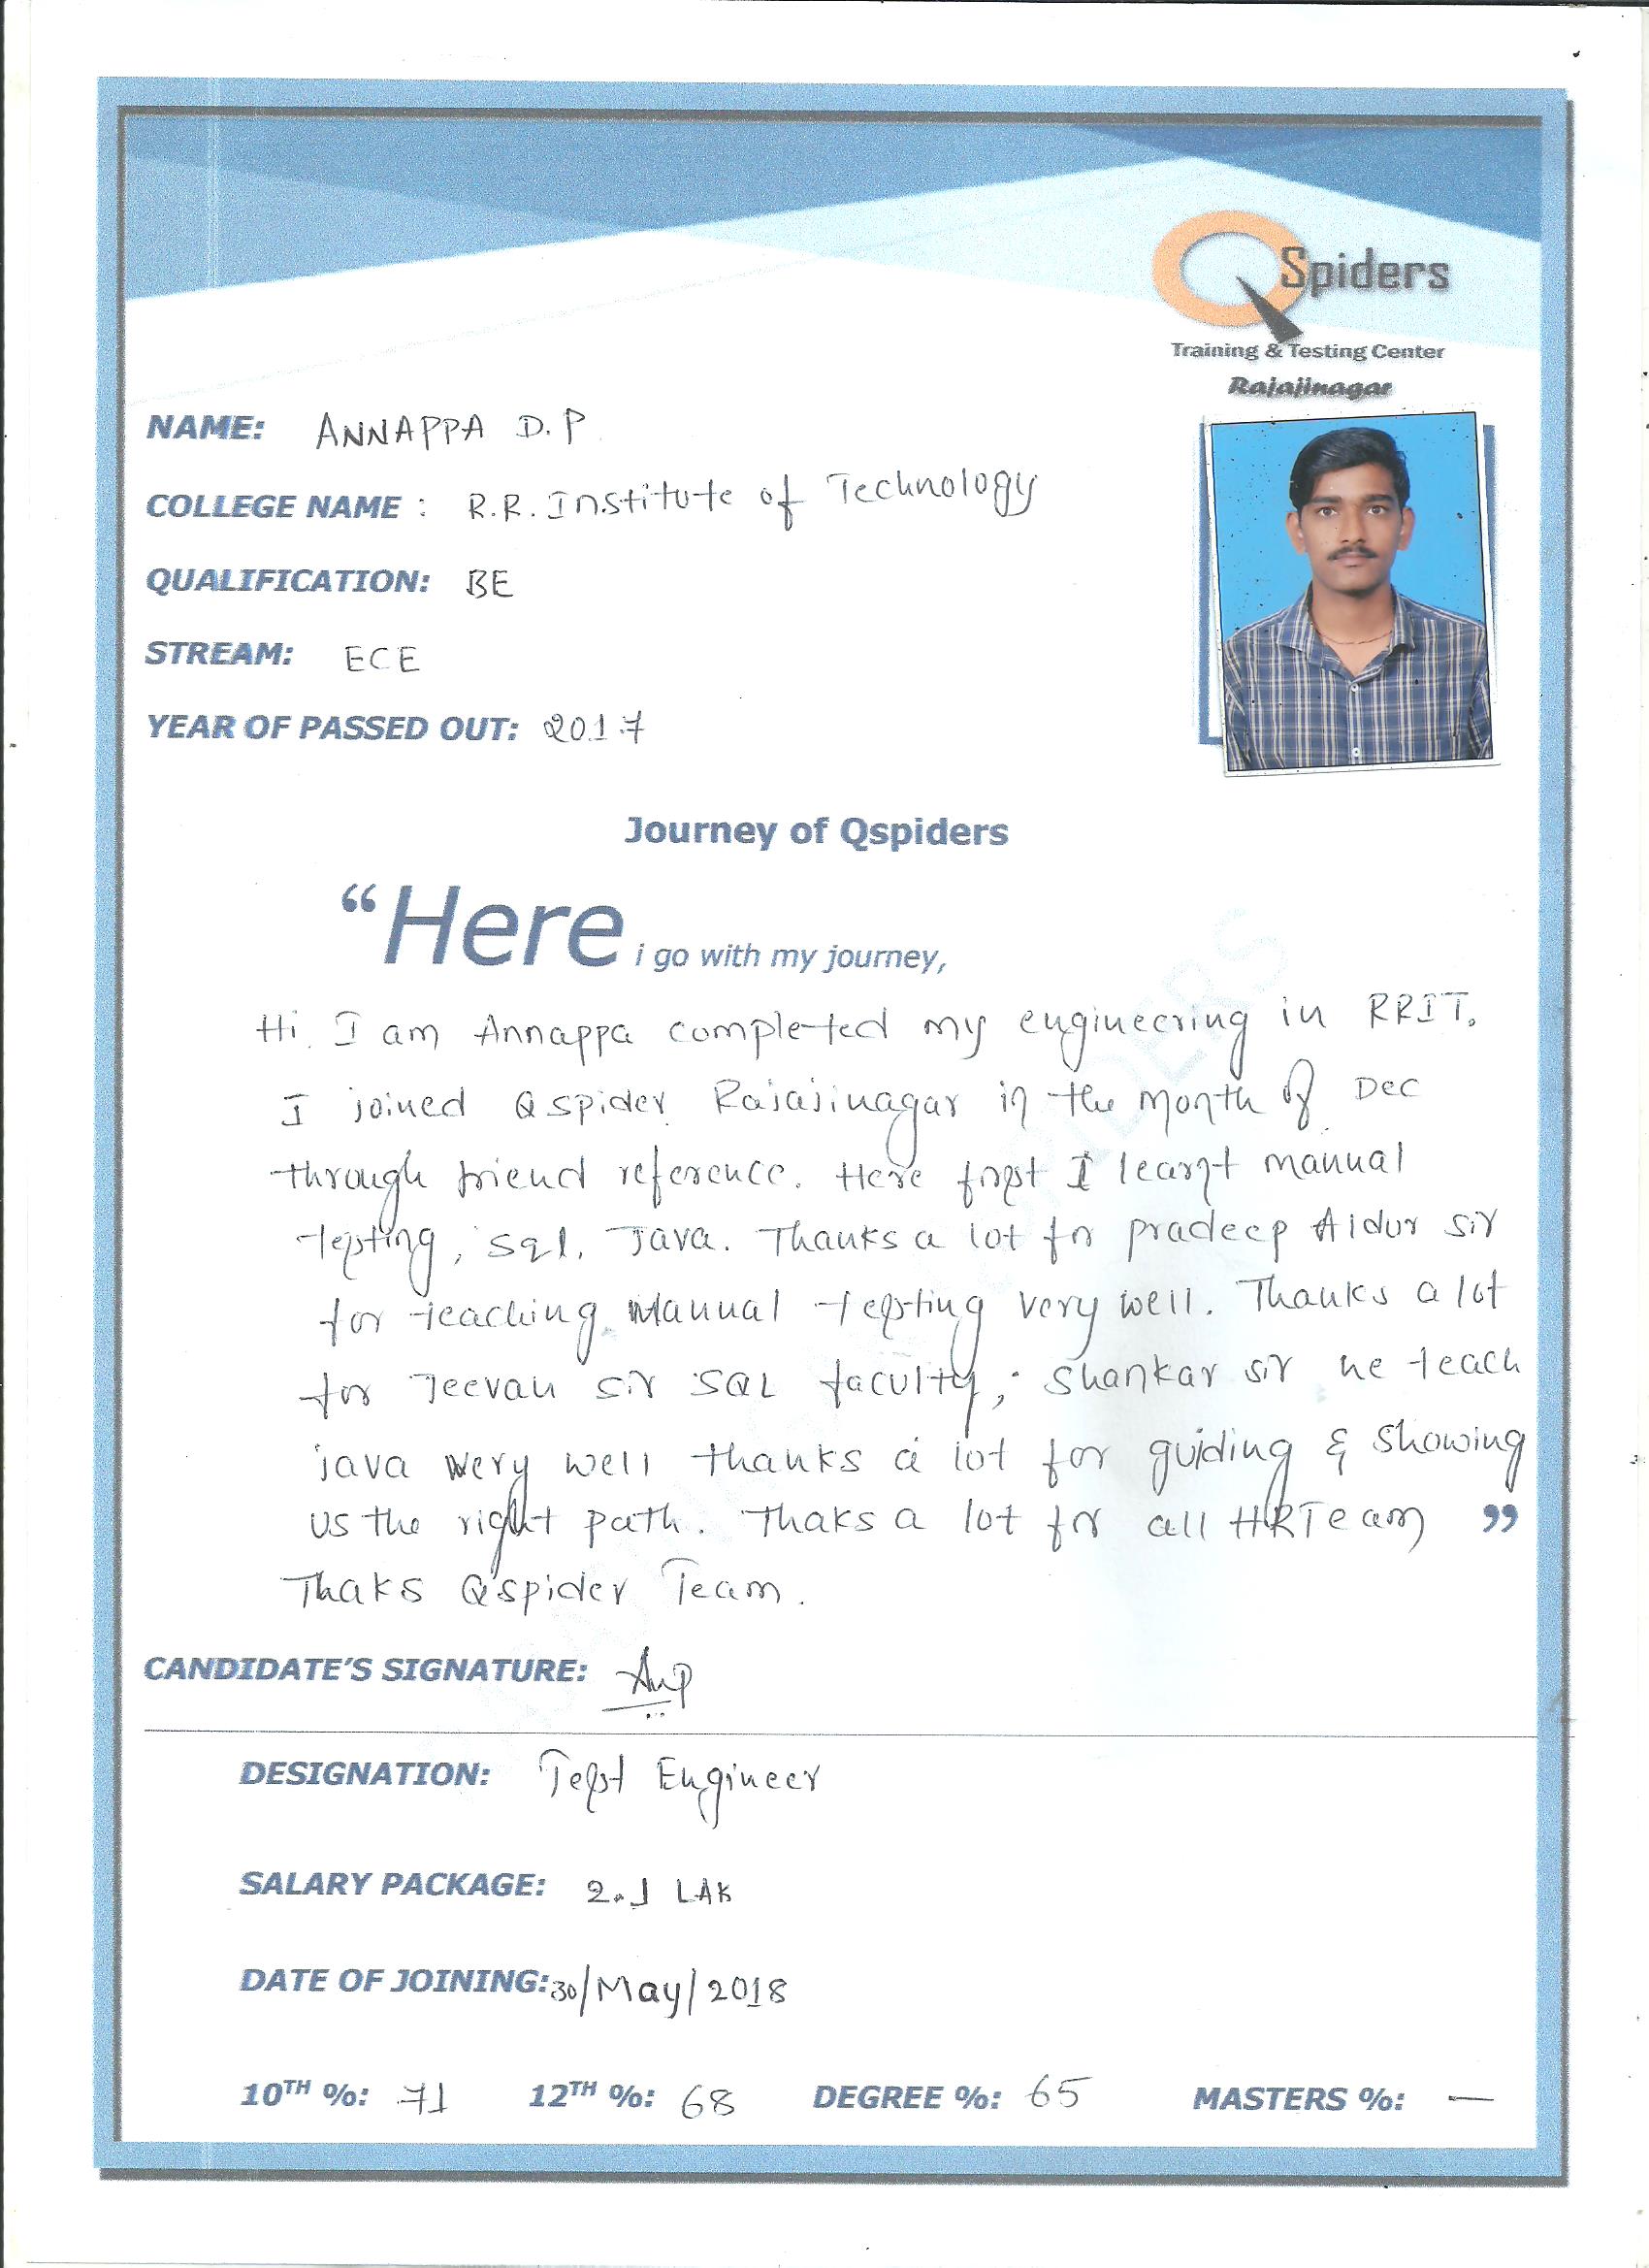 QSpiders
Training & Testing Center
Rajajinagar
NAME: ANNAPPA D.P
COLLEGE NAME : R.R. Institute of Technology
QUALIFICATION: BE
STREAM: ECE
YEAR OF PASSED OUT: 2017
Journey of Qspiders
“Here i go with my journey,
Hi. I am Annappa completed my engineering in RRIT.
I joined Qspider Rajajinagar in the month of Dec
through friend reference. Here first I learnt manual
testing, sql, Java. Thanks a lot for pradeep Aidur sir
for teaching Manual testing very well. Thanks a lot
for Jeevan sir SQL faculty, Shankar sir he teach
java very well thanks a lot for guiding & showing
us the right path. Thaks a lot for all HR Team ”
Thaks Qspider Team.
CANDIDATE'S SIGNATURE:
DESIGNATION: Test Engineer
SALARY PACKAGE: 2.1 LAK
DATE OF JOINING: 30/May/2018
10TH %: 71 12TH %: 68 DEGREE %: 65 MASTERS %: —